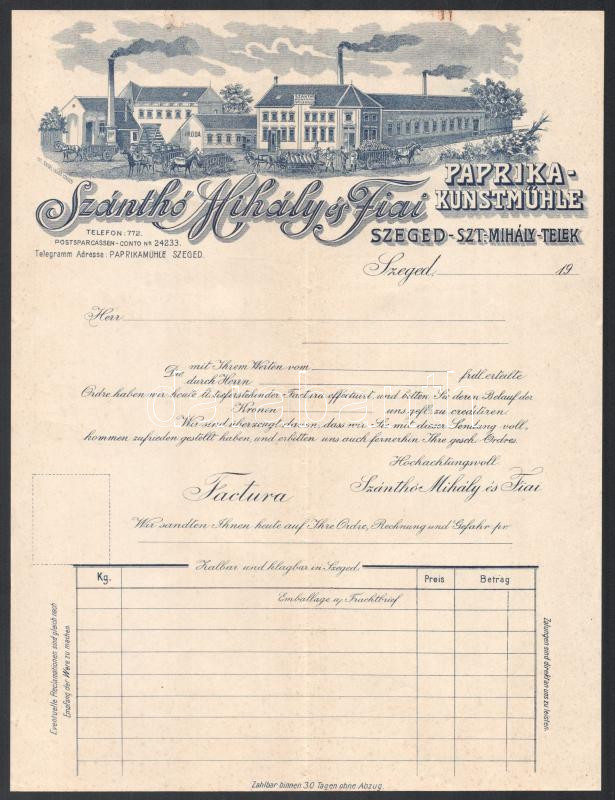 IRODA
Szánthó Mihály és Fiai
PAPRIKA-
KUNSTMÜHLE
SZEGED-SZT-MIHÁLY-TELEK
TELEFON: 772.
POSTSPARCASSEN-CONTO Nr. 24233.
Telegramm Adresse: PAPRIKAMÜHLE SZEGED.
Szeged, 19
Herr
Die mit Ihrem Werten vom
durch Herrn frdl. erteilte
Ordre haben wir heute lt. tieferstehender Factura effectuirt, und bitten Sie deren Belauf der
Kronen uns gefl. zu creditiren.
Wir sind überzeugt davon, dass wir Sie mit dieser Sendung voll-
kommen zufrieden gestellt haben, und erbitten uns auch fernerhin Ihre gesch. Ordres.
Hochachtungsvoll
Factura
Szánthó Mihály és Fiai
Wir sandten Ihnen heute auf Ihre Ordre, Rechnung und Gefahr pr
Zalbar und klagbar in Szeged.
Kg. Preis Betrag
Emballage u. Frachtbrief
Eventuelle Reclamationen sind gleich nach
Empfang der Ware zu machen.
Zalungen sind direkt an uns zu leisten.
Zahlbar binnen 30 Tagen ohne Abzug.